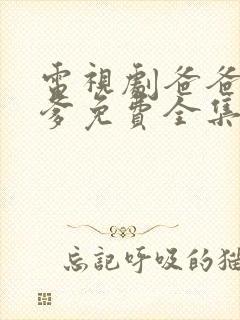 電視劇爸爸
爹免費全集
忘記呼吸的猫